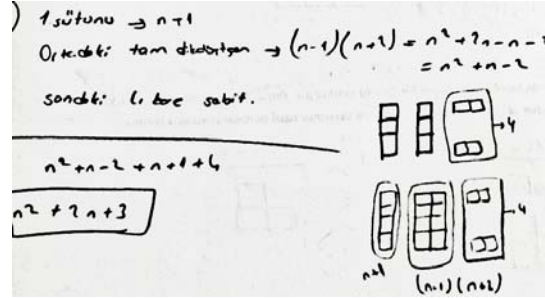 ) 1 sütunu → n+1
Ortadaki tam dikdörtgen → (n-1)(n+2) = n² + 2n - n - 2
= n² + n - 2
sondaki 4 tane sabit.
n² + n - 2 + n + 1 + 4
n² + 2n + 3
4
4
n+1
(n-1)(n+2)